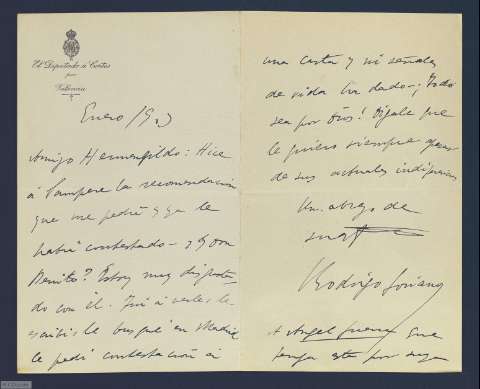 El Diputado á Cortes
por
Valencia
Enero 1903
Amigo Hermenegildo: Hice
á Sampere la recomendación
que me pedía y ya le
habrá contestado – y Don
Benito? Estoy muy disgusta
do con él. Fuí a verle, le
escribí, le busqué en Madrid
le pedí contestación á
una carta y ni señales
de vida ha dado. ¡Todo
sea por Dios! Dígale que
le quiero siempre apesar
de sus actuales
Un abrazo de
Rodrigo Soriano
A Angel Guerra que
tenga esta por suya